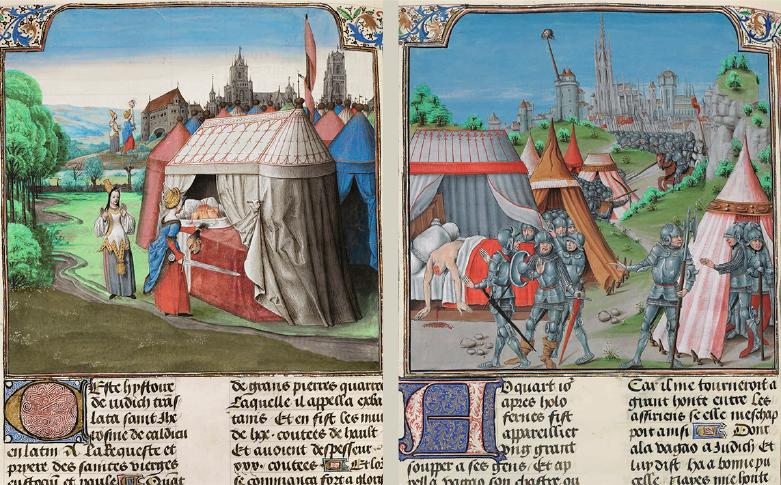 Este hystoire
de iudich trās
lata saint Ihe
rosme de caldieu
en latin A la requeste et
pryere des sainctes vierges
de grans pierres quarre
Laquelle il appella exba
tanis Et en fist les mu
de lxx coutees de hault
Et auoient despesseur
xxx coutees Et lo
se commanca fort a glori
A
D quart io
apres holo
fernes fist
appareillier
vng grant
soupper a ses gens Et ap
Car il me tourneroit a
grant honte entre les
assiriens se elle meschap
poit ainsi Dont
ala vagao a Judich et
luy dist Ha a bonne pu
celle